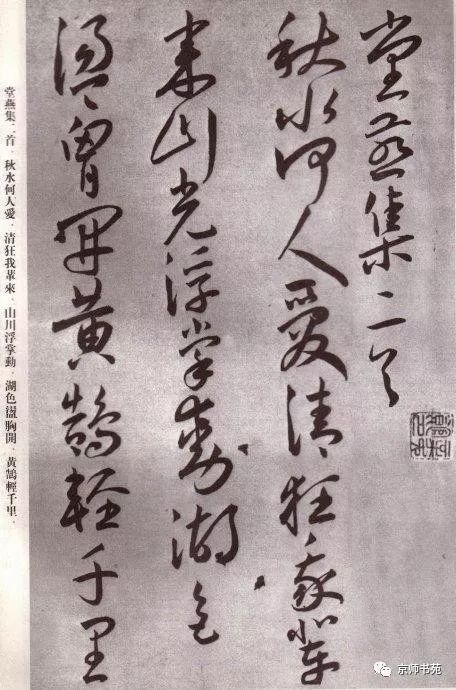 堂燕集二首
秋水何人愛清狂我輩
来山光浮掌動湖色
盪胸開黄鵠輕千里
堂燕集二首．秋水何人愛．清狂我輩來．山川浮掌動．湖色盪胸開．黃鵠輕千里．
京师书苑